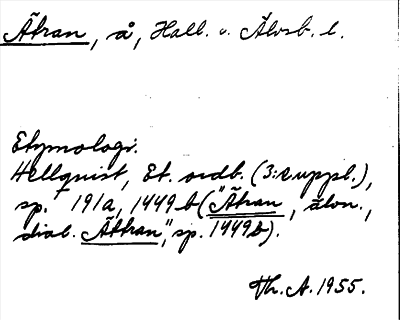 Ätran, å, Hall. o. Älvsb. l.
Etymologi:
Hellquist, Et. ordb. (3:e uppl.),
sp. 191a, 1449 b ("Ätran, älvn.,
dial. Ättran", sp. 1449b).
Th. A. 1955.